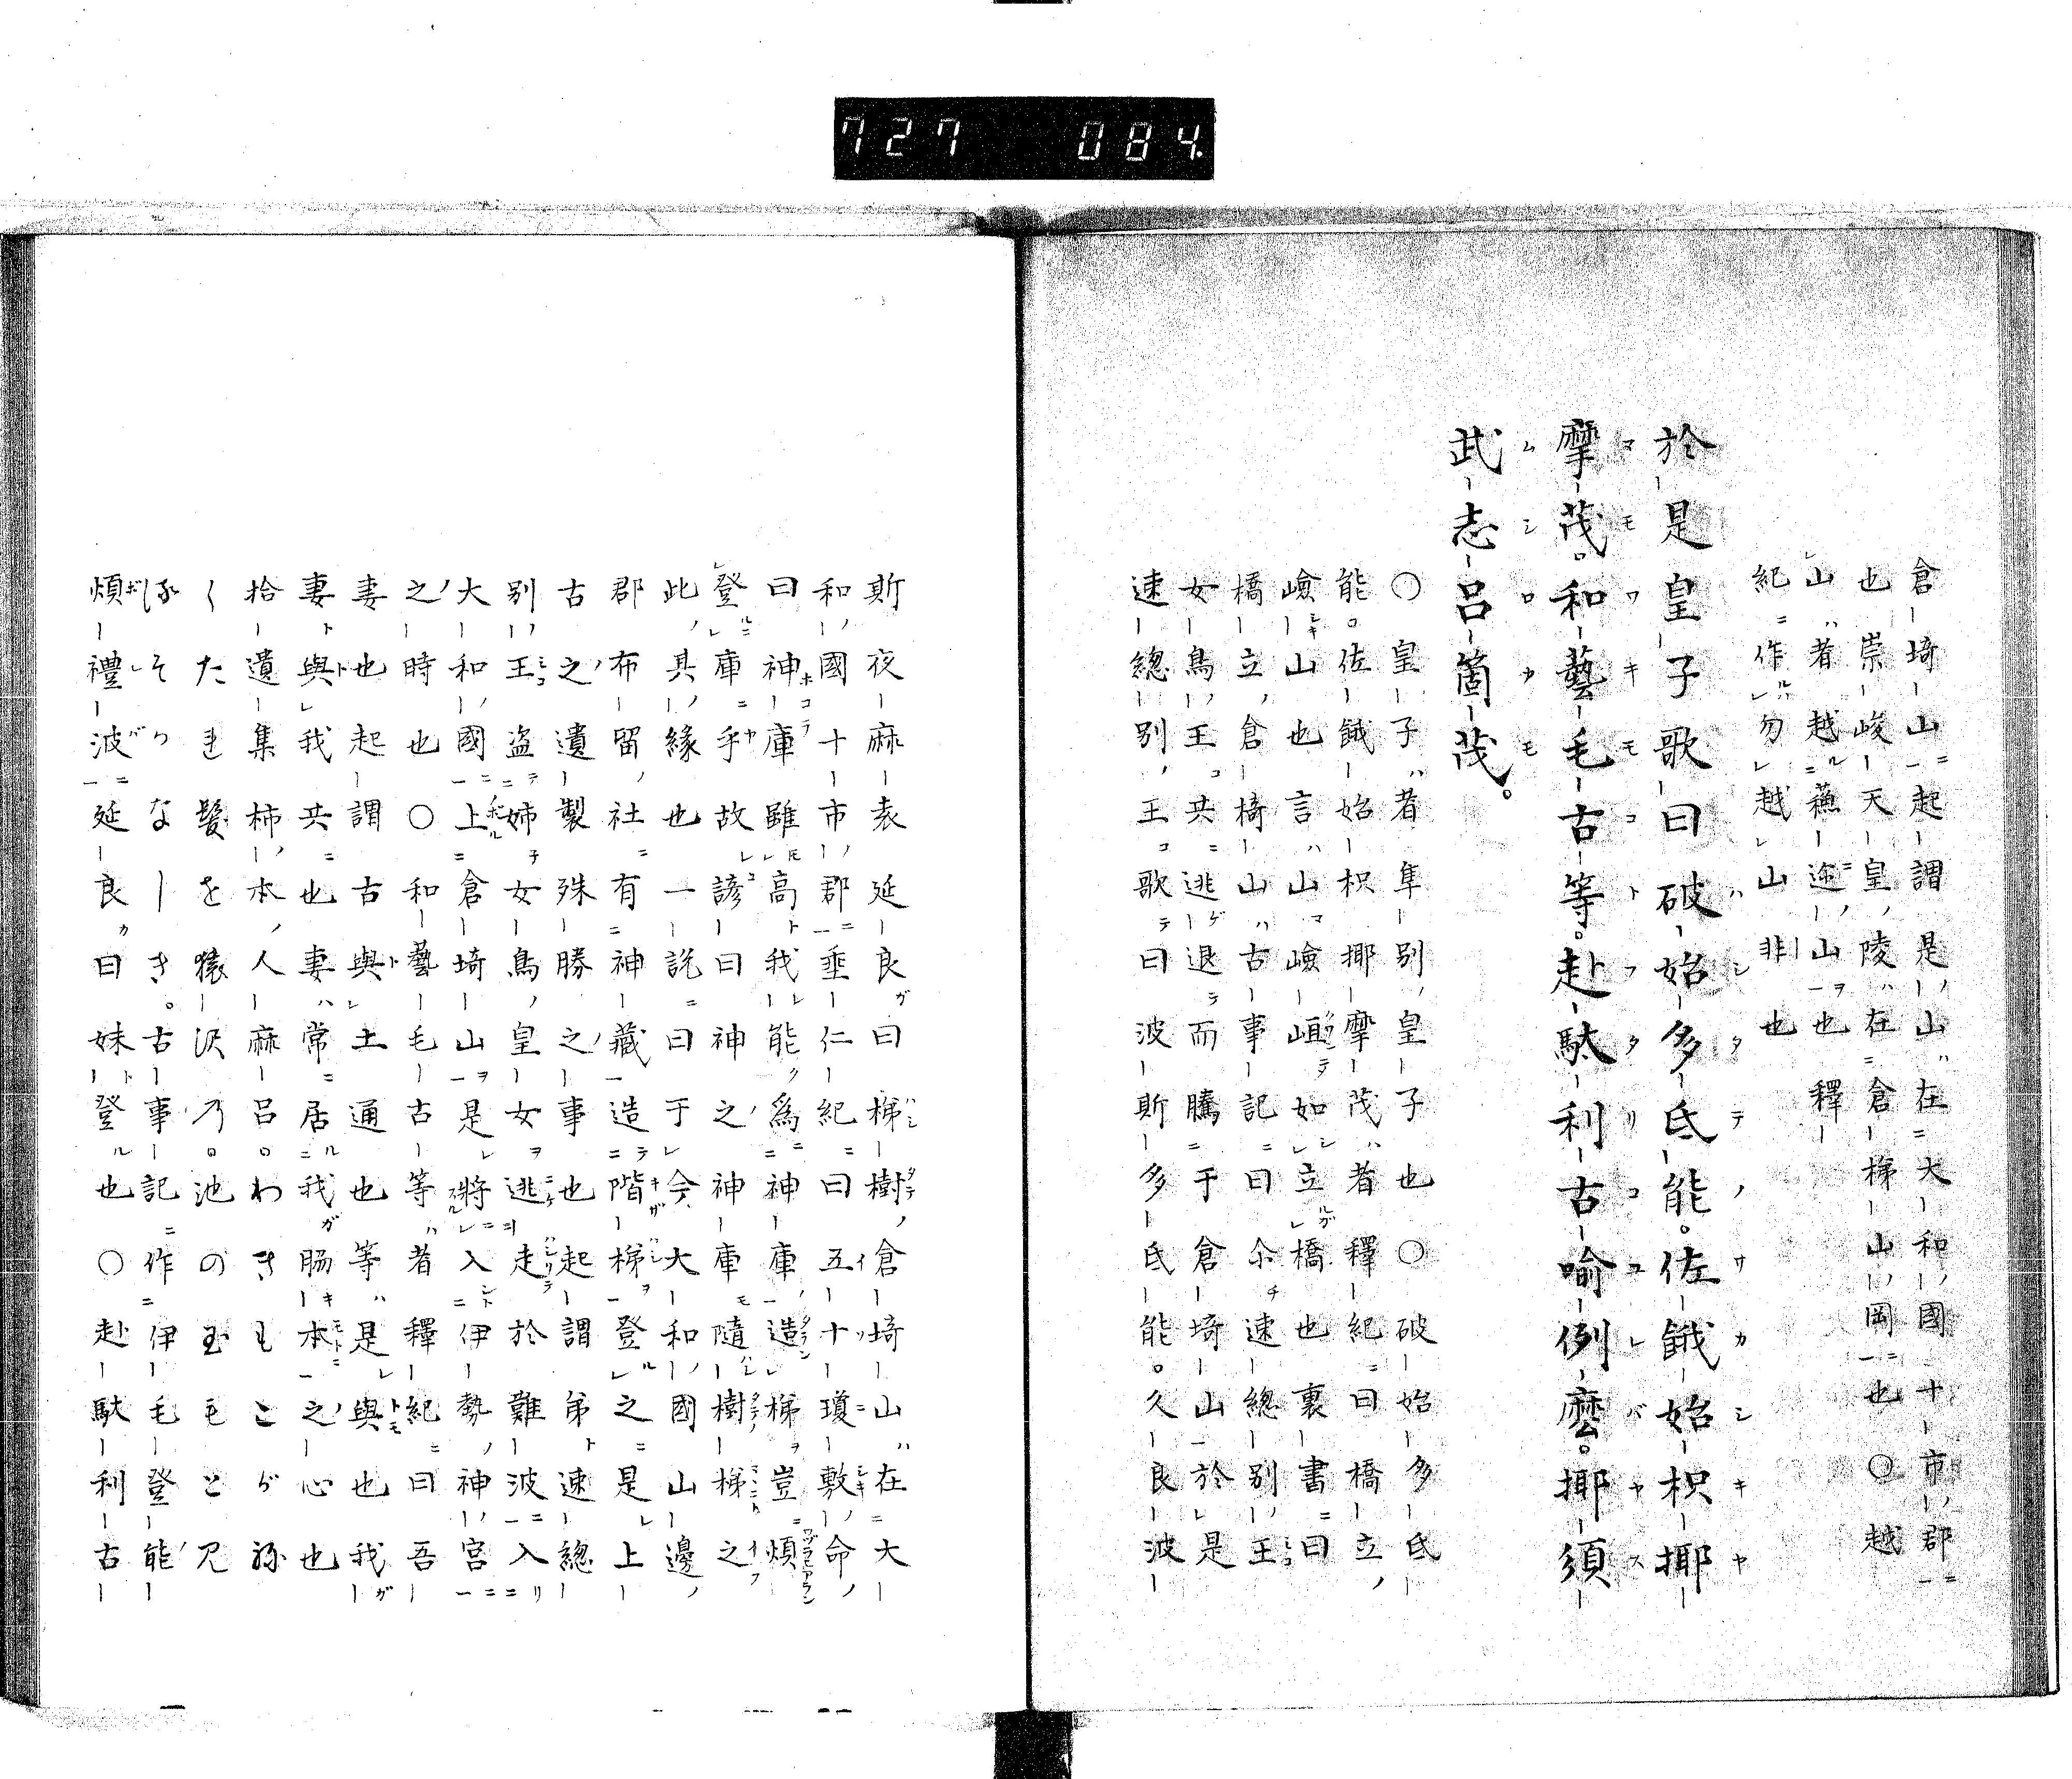 727 084
倉埼山起謂是山在大和國十市郡
也崇峻天皇陵在倉梯山岡也〇越
山者越蘓迩山也釋
紀作勿越山非也
於是皇子歌曰破始多氐能。佐餓始枳揶
摩茂。和藝毛古等。赴駄利古喻例麼。揶須
武志呂箇茂。
〇皇子者隼別皇子也〇破始多氐
能。佐餓始枳揶摩茂者釋紀曰橋立
嶮山也言山嶮岨如立橋也裏書曰
橋立倉椅山古事記曰尒速總別王
女鳥王共逃退而騰于倉埼山於是
速總別王歌曰波斯多氐能。久良波
斯夜麻袁延良曰梯樹倉埼山在大
和國十市郡垂仁紀曰五十瓊敷命
曰神庫雖高我能為神庫造梯豈煩
登庫乎故諺曰神之神庫隨樹梯之
此其縁也一說曰于今大和國山邊
郡布留社有神藏造階梯登之是上
古之遺製殊勝之事也起謂弟速總
別王盗姉女鳥皇女逃走於難波入
大和國上倉埼山是將入伊勢神宮
之時也〇和藝毛古等者釋紀曰吾
妻也起謂古與土通也等是與也我
妻與我共也妻常居我肠本之心也
拾遺集柿本人麻呂。わきもこがね
くたれ髪を猿沢乃。池の玉もと見
るそかなしき。古事記作伊毛登能
煩禮波延良曰妹登也〇赴駄利古